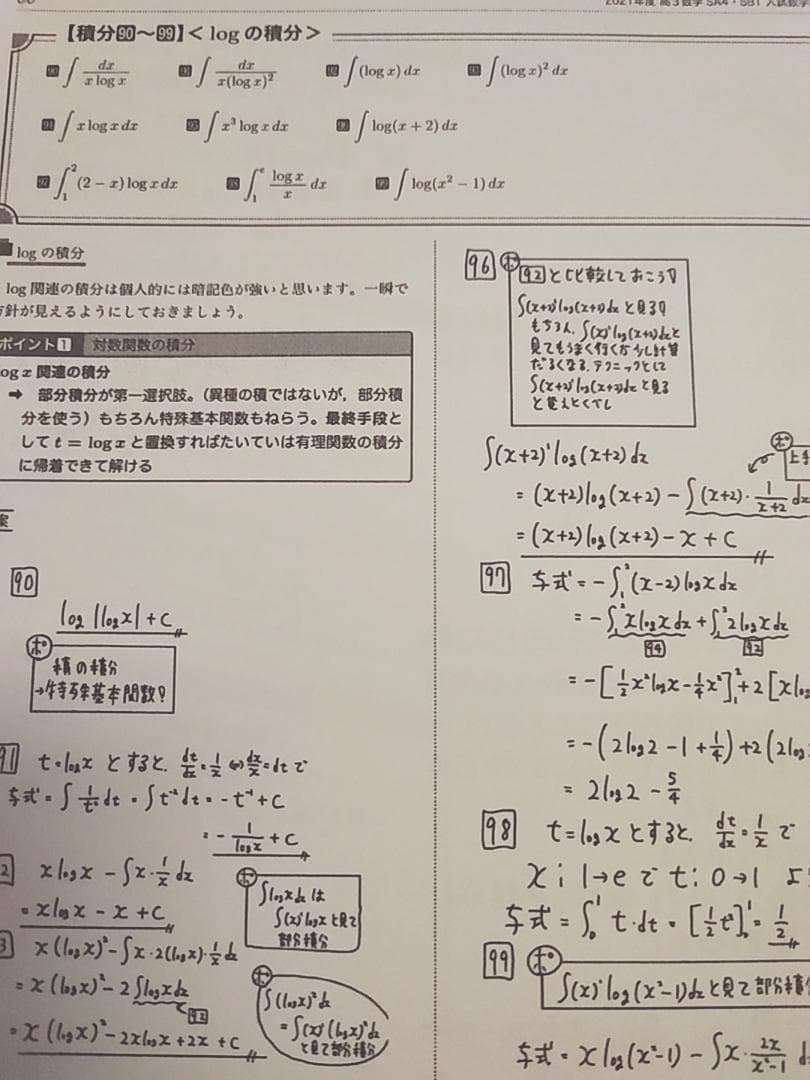 2021年度 高3数学 SA4・SB1 入試数学
【積分90〜99】< log の積分 >
90 ∫ dx/(x log x) 91 ∫ dx/(x(log x)²) 92 ∫(log x) dx 93 ∫(log x)² dx
94 ∫ x log x dx 95 ∫ x³ log x dx 96 ∫ log(x + 2) dx
97 ∫₁² (2 − x) log x dx 98 ∫₁ᵉ (log x)/x dx 99 ∫ log(x² − 1) dx
log の積分
log 関連の積分は個人的には暗記色が強いと思います。一瞬で
方針が見えるようにしておきましょう。
ポイント1 対数関数の積分
log x 関連の積分
➡ 部分積分が第一選択肢。（異種の積ではないが，部分積
分を使う）もちろん特殊基本関数もねらう。最終手段と
して t = log x と置換すればたいていは有理関数の積分
に帰着できて解ける
案
90
log |log x| + C
ポ
積の積分
→特殊基本関数?
91 t = log x とすると、 dt/dx = 1/x ⇔ dx/x = dt で
与式 = ∫ 1/t² dt = ∫ t⁻² dt = −t⁻¹ + C
= − 1/(log x) + C
2 x log x − ∫ x・1/x dx
= x log x − x + C
ポ
∫ log x dx は
∫(x)' log x と見て
部分積分
3 x (log x)² − ∫ x・2(log x)・1/x dx
= x (log x)² − 2 ∫ log x dx
92
= x (log x)² − 2x log x + 2x + C
ポ
∫ (log x)² dx
= ∫(x)' (log x)² dx
と見て部分積分
96 ポ
92 と比較しておこう!
∫(x+2)' log(x+2) dx と見る!
もちろん、∫(x)' log(x+2) dx と
見てもうまく行くが少し計算
だるくなる。テクニックとして
∫(x+2)' log(x+2) dx と見る
と覚えとくべし
∫(x+2)' log(x+2) dx
ポ 上手
= (x+2) log(x+2) − ∫ (x+2)・1/(x+2) dx
= (x+2) log(x+2) − x + C
97 与式 = −∫₁² (x−2) log x dx
= −∫₁² x log x dx + ∫₁² 2 log x dx
94 92
= −[ 1/2 x² log x − 1/4 x² ]₁² + 2 [ x log
= −( 2 log 2 − 1 + 1/4 ) + 2 ( 2 log
= 2 log 2 − 5/4
98 t = log x とすると、 dt/dx = 1/x で
x : 1→e で t : 0→1 よ
与式 = ∫₀¹ t・dt = [ 1/2 t² ]₀¹ = 1/2
99 ポ
∫(x)' log(x²−1) dx と見て部分積分
与式 = x log(x²−1) − ∫ x・2x/(x²−1) d